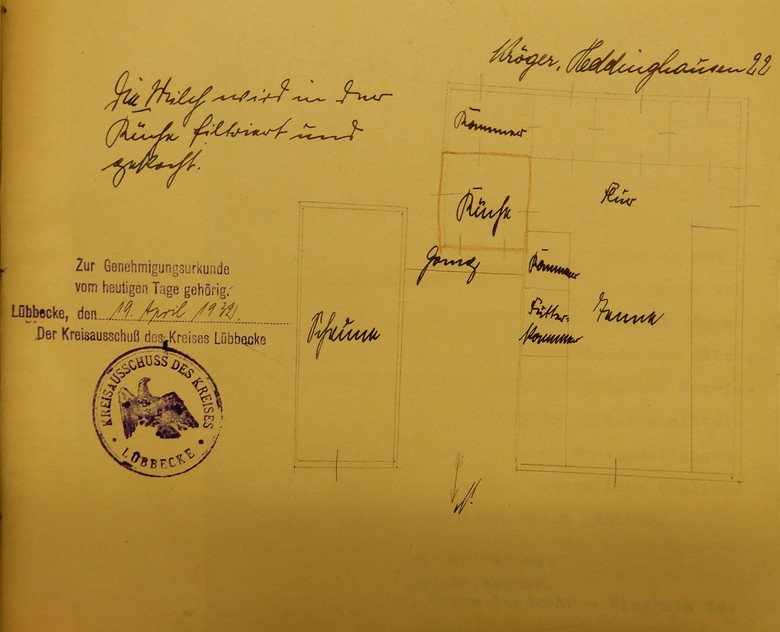 Kröger, Heddinghausen 22
Die Milch wird in der
Küche filtriert und
gekocht.
Kammer
Küche
Flur
Gang
Kammer
Futter-
kammer
Tenne
Scheune
N.
Zur Genehmigungsurkunde
vom heutigen Tage gehörig.
Lübbecke, den 19. April 1932.
Der Kreisausschuß des Kreises Lübbecke
KREISAUSSCHUSS DES KREISES
LÜBBECKE